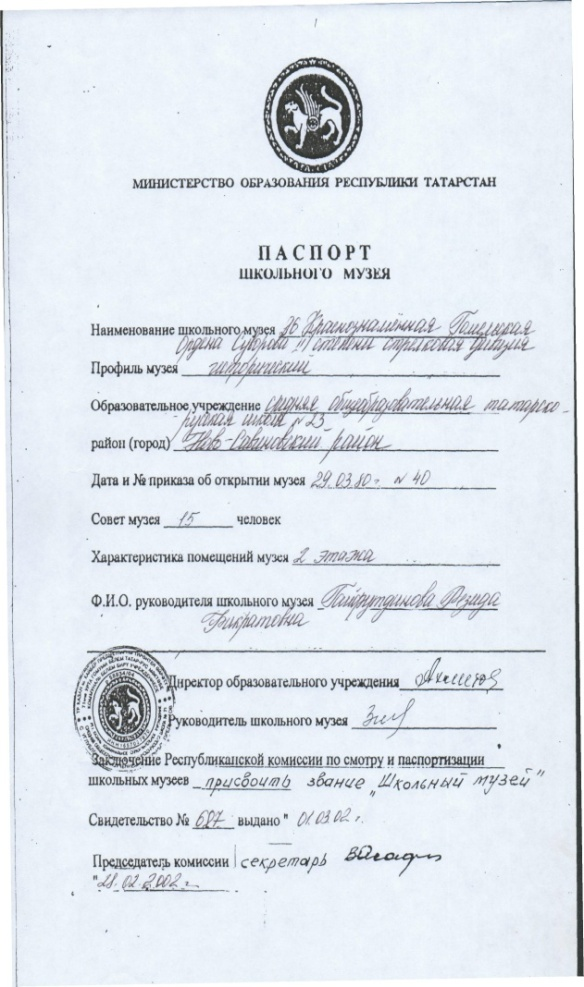 МИНИСТЕРСТВО ОБРАЗОВАНИЯ РЕСПУБЛИКИ ТАТАРСТАН
ПАСПОРТ
ШКОЛЬНОГО МУЗЕЯ
Наименование школьного музея 36 Краснознамённая Гомельская
Ордена Суворова II степени стрелковая дивизия
Профиль музея исторический
Образовательное учреждение средняя общеобразовательная татарско-
русская школа № 23
район (город) Ново-Савиновский район
Дата и № приказа об открытии музея 29.03.80г. № 40
Совет музея 15 человек
Характеристика помещений музея 2 этажа
Ф.И.О. руководителя школьного музея
Директор образовательного учреждения
Руководитель школьного музея
Заключение Республиканской комиссии по смотру и паспортизации
школьных музеев присвоить звание „Школьный музей"
Свидетельство № 687 выдано " 01.03.02 г.
Председатель комиссии | секретарь
"28.02.2002 г.